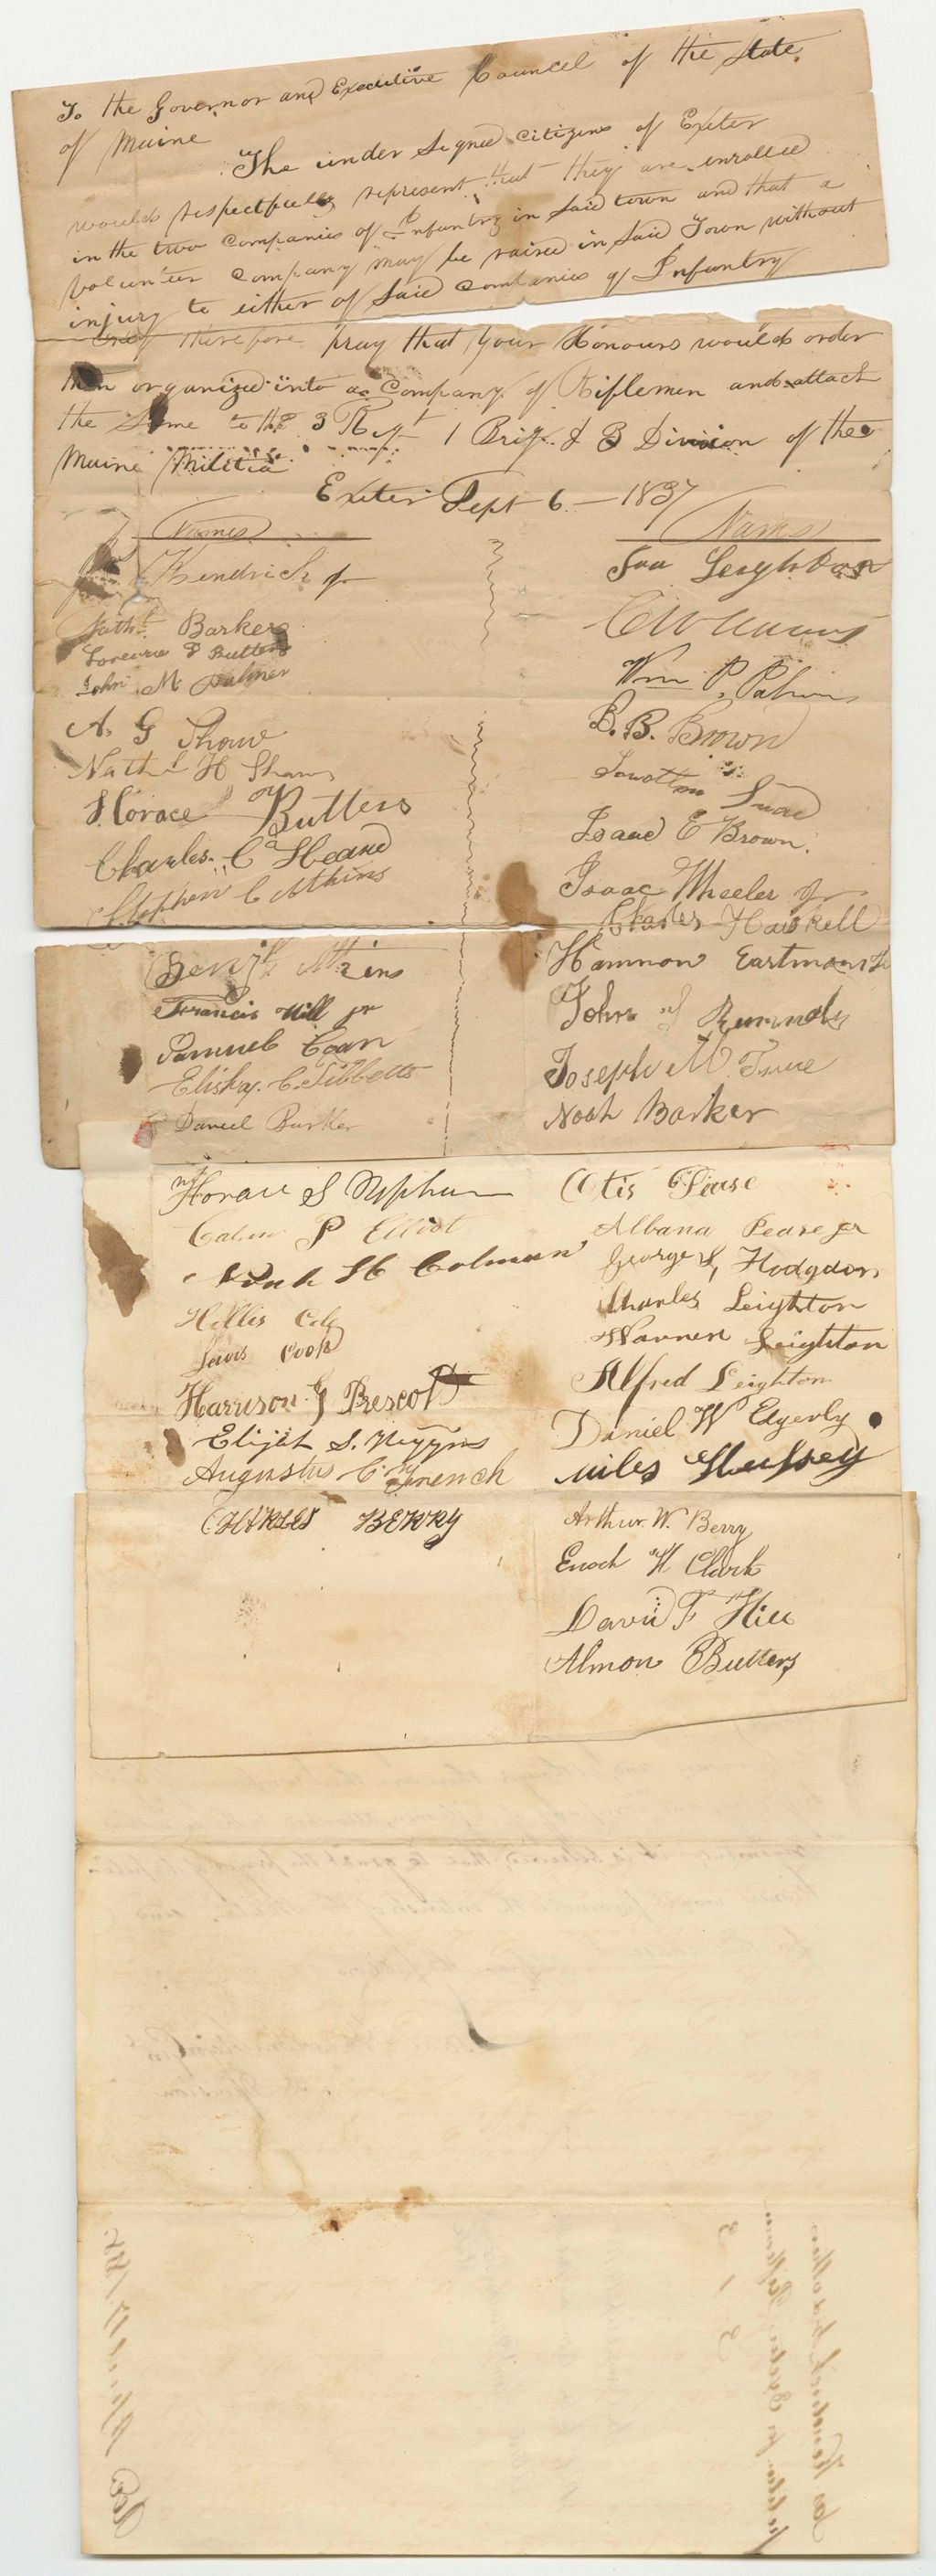 To the Governor and Executive Councel of the State
of Maine
The under Signed Citizens of Exeter
would respectfully represent that they are enrolled
in the two Companies of Infantry in Said town and that a
Volunteer Company may be raised in Said Town without
injury to either of Said Companies of Infantry
they therefore pray that your Honours would order
them organized into a Company of Riflemen and attach
the Same to the 3 Regt 1 Brig. & 3 Division of the
Maine Militia
Exeter Sept 6 - 1837
Names
Kendrick Jr
Nathl Barker
Butters
John M Palmer
A. G Shaw
Nathl H Shaw
Horace Butters
Charles C Heard
Stephen C Atkins
Benj Atkins
Francis Hill jr
Samuel Cogan
Elisha C. Tibbetts
Daniel Barker
Horace S
Calvin P Elliot
H Colman
Hollis Cole
Lewis Cook
Harrison G Prescott
Elijah S. Higgins
Augustus C French
CHARLES BERRY
Names
Leighton
C Williams
Wm P. Palmer
B. B. Brown
Isaac E Brown.
Isaac Wheeler Jr
Charles Haskell
Hammon Eastman
John
Joseph M True
Noah Barker
Otis Pease
Albana Pease jr
George S, Hodgdon
Charles Leighton
Warren Leighton
Alfred Leighton
Daniel W Edgerly
Miles Hussey
Arthur W. Berry
Enoch H Clark
David F Hill
Almon Butters